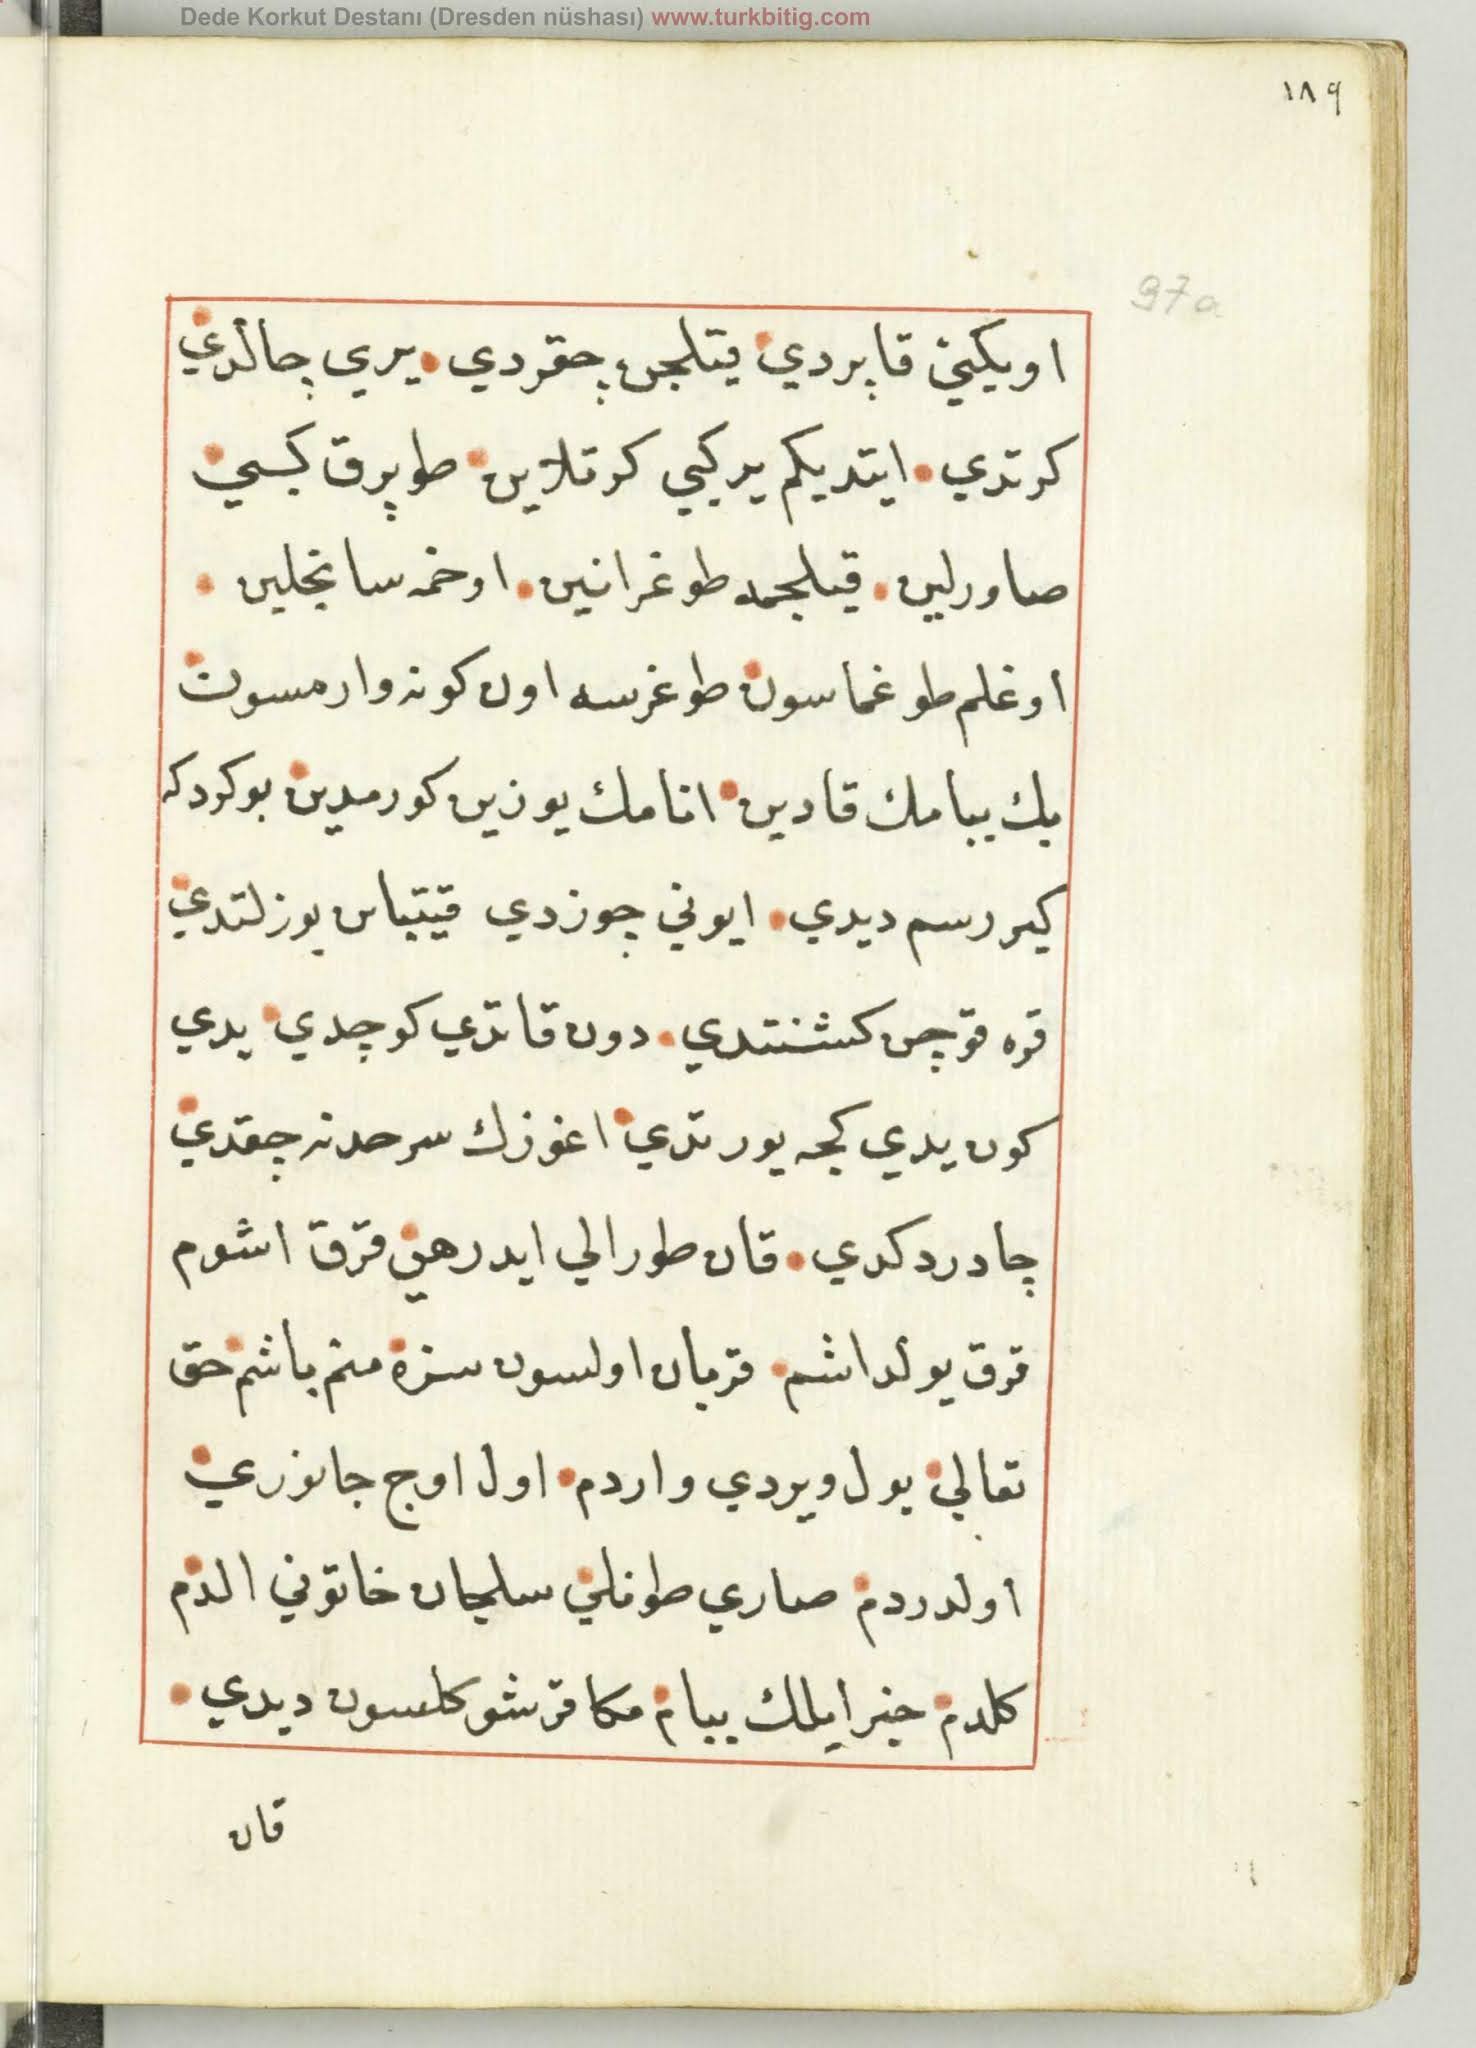 Dede Korkut Destanı (Dresden nüshası) www.turkbitig.com
١٨٩
97a
اويكيني قاپردي قيلجن چقردي يري چالدي
كرتدي ايتديكم ير كبي كرتلاين طوپرق كبي
صاورلين قيلجمه طوغرانين اوخمه سانجلين
اوغلم طوغماسون طوغرسه اون كونه وارمسون
بك ببامك قادين انامك يوزين كورمدين بو كردكه
كيررسم ديدي ايوني چوزدي قيتباس بوزلتدي
قره قوچن كشنتدي دون قاتدي كوچدي يدي
كون يدي كجه يورتدي اغوزك سرحدنه چقدي
چادر دكدي قان طورالي ايدر هي قرق اشوم
قرق يولداشم قربان اولسون سزه منم باشم حق
تعالي يول ويردي واردم اول اوچ جانوري
اولدردم صاري طونلي سلجان خاتوني الدم
كلدم خبر ايلك ببام مكا قرشو كلسون ديدي
قان